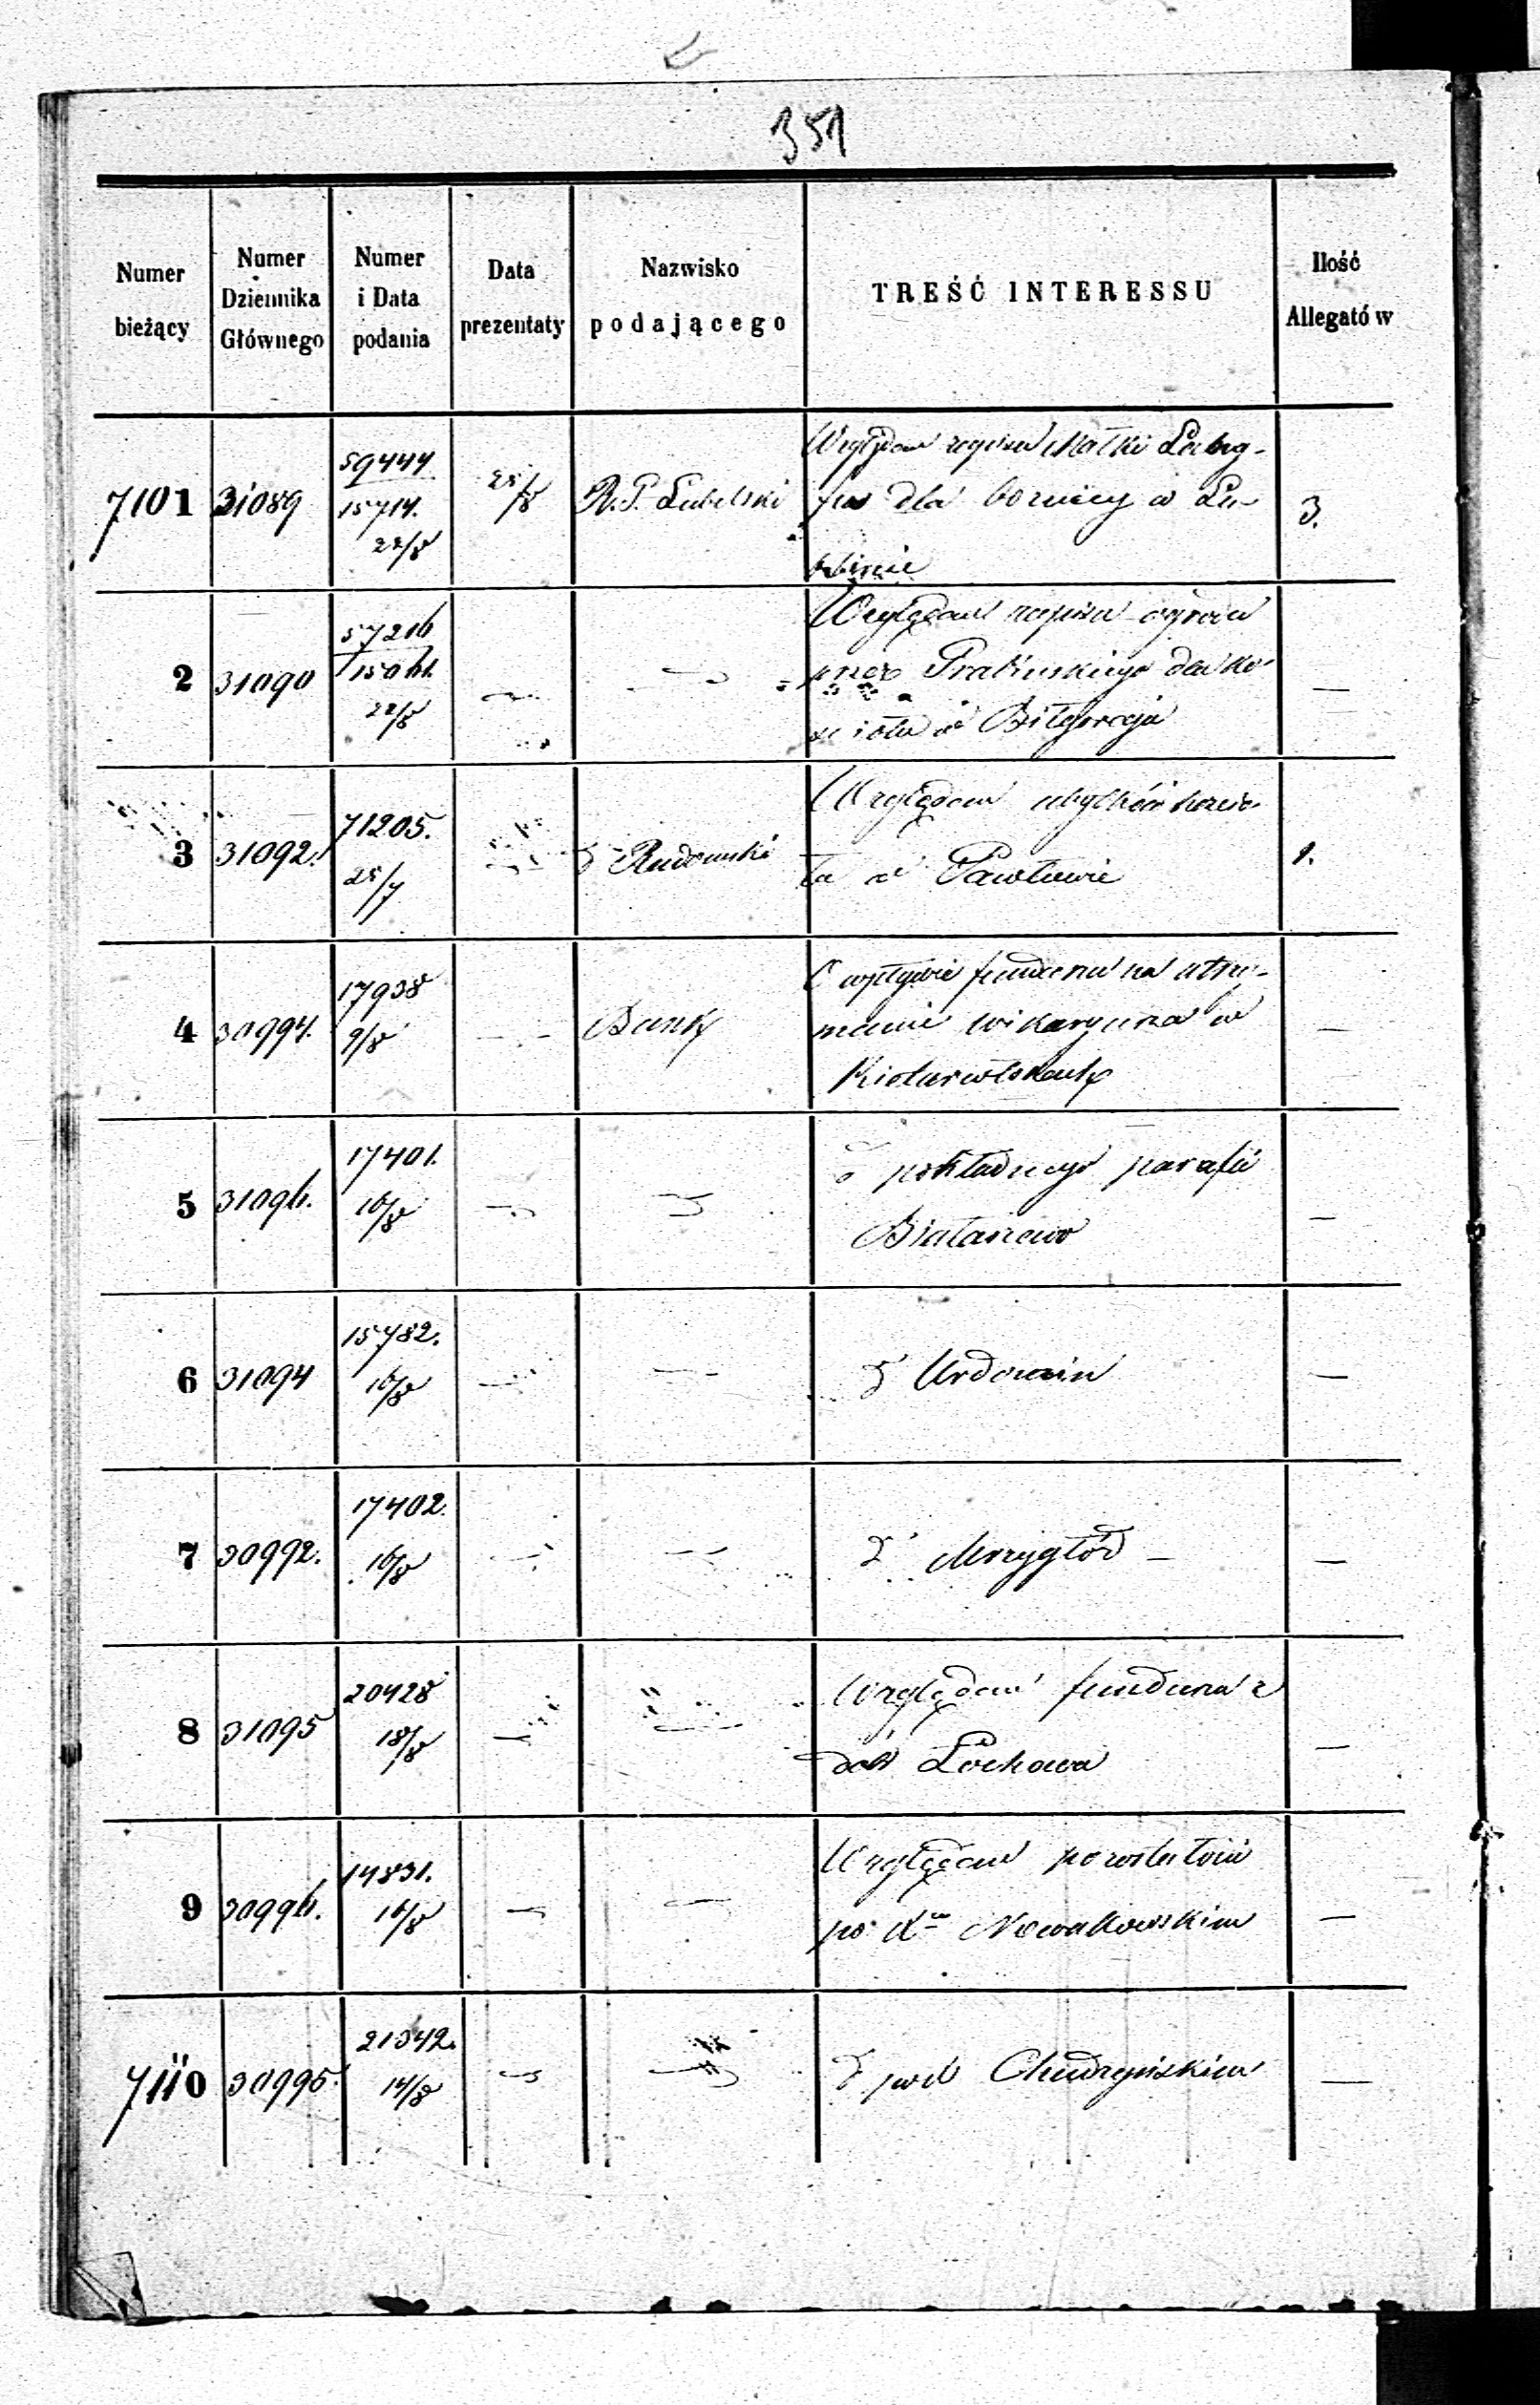 351
Numer bieżący
Numer Dziennika Głównego
Numer i Data podania
Data prezentaty
Nazwisko podającego
TREŚĆ INTERESSU
Ilość Allegatów
7101 31089 59444 25/8 R. P. Lubelski
15714.
22/8
dla w Lu-
3.
2 31090 57216
22/8
Względem zapisu
przez dla ko-
ścioła w Biłgoraju
—
3 31092. 71205. d Radomski
25/7
Względem
ła w Pawłowie
1.
4 30994. 17938 Bank
9/8
O wpływie funduszu na utrzy-
manie wikaryusza w
—
5 31096. 17401.
16/8
o pokładnego parafii
Białaszewo
—
6 31094 15782.
16/8
d Urdomin
—
7 30992. 17402.
16/8
d Mrzygłód —
—
8 31095 20428
18/8
Względem funduszu z
dóbr Łochowa
—
9 30996. 14831.
16/8
Względem pozostałości
po Xu Nowakowskim
—
7110 30995. 21342.
14/8
d. pod Chudzyńskim
—